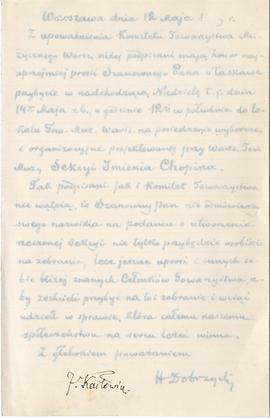 Warszawa dnia 12 Maja
Z upoważnienia Komitetu Towarzystwa Mu-
zycznego Warsz. niżej podpisani mają honor naj-
uprzejmiej prosić Szanownego Pana o łaskawe
przybycie w nadchodzącą Niedzielę t. j. dnia
14go Maja r.b. o godzinie 12½ w południe do lo-
kalu Tow. Muz. Warsz. na posiedzenie wyborcze
i organizacyjne projektowanej przy Warsz. Tow.
Muz. Sekcyi Imienia Chopina.
Tak podpisani jak i Komitet Towarzystwa
nie wątpią, że Szanowny Pan nie odmówiwszy
swego nazwiska na podaniu o utworzenie
rzeczonej Sekcyi nie tylko przybędzie osobiście
na zebranie, lecz jeszcze uprosi i innych so-
bie bliżej znanych Członków Towarzystwa, a-
by zechcieli przybyć na toż zebranie i wziąć
udział w sprawie, która całemu naszemu
społeczeństwu na sercu leżeć winna.
Z głębokiem poważaniem
J. Karłowicz
H Dobrzycki